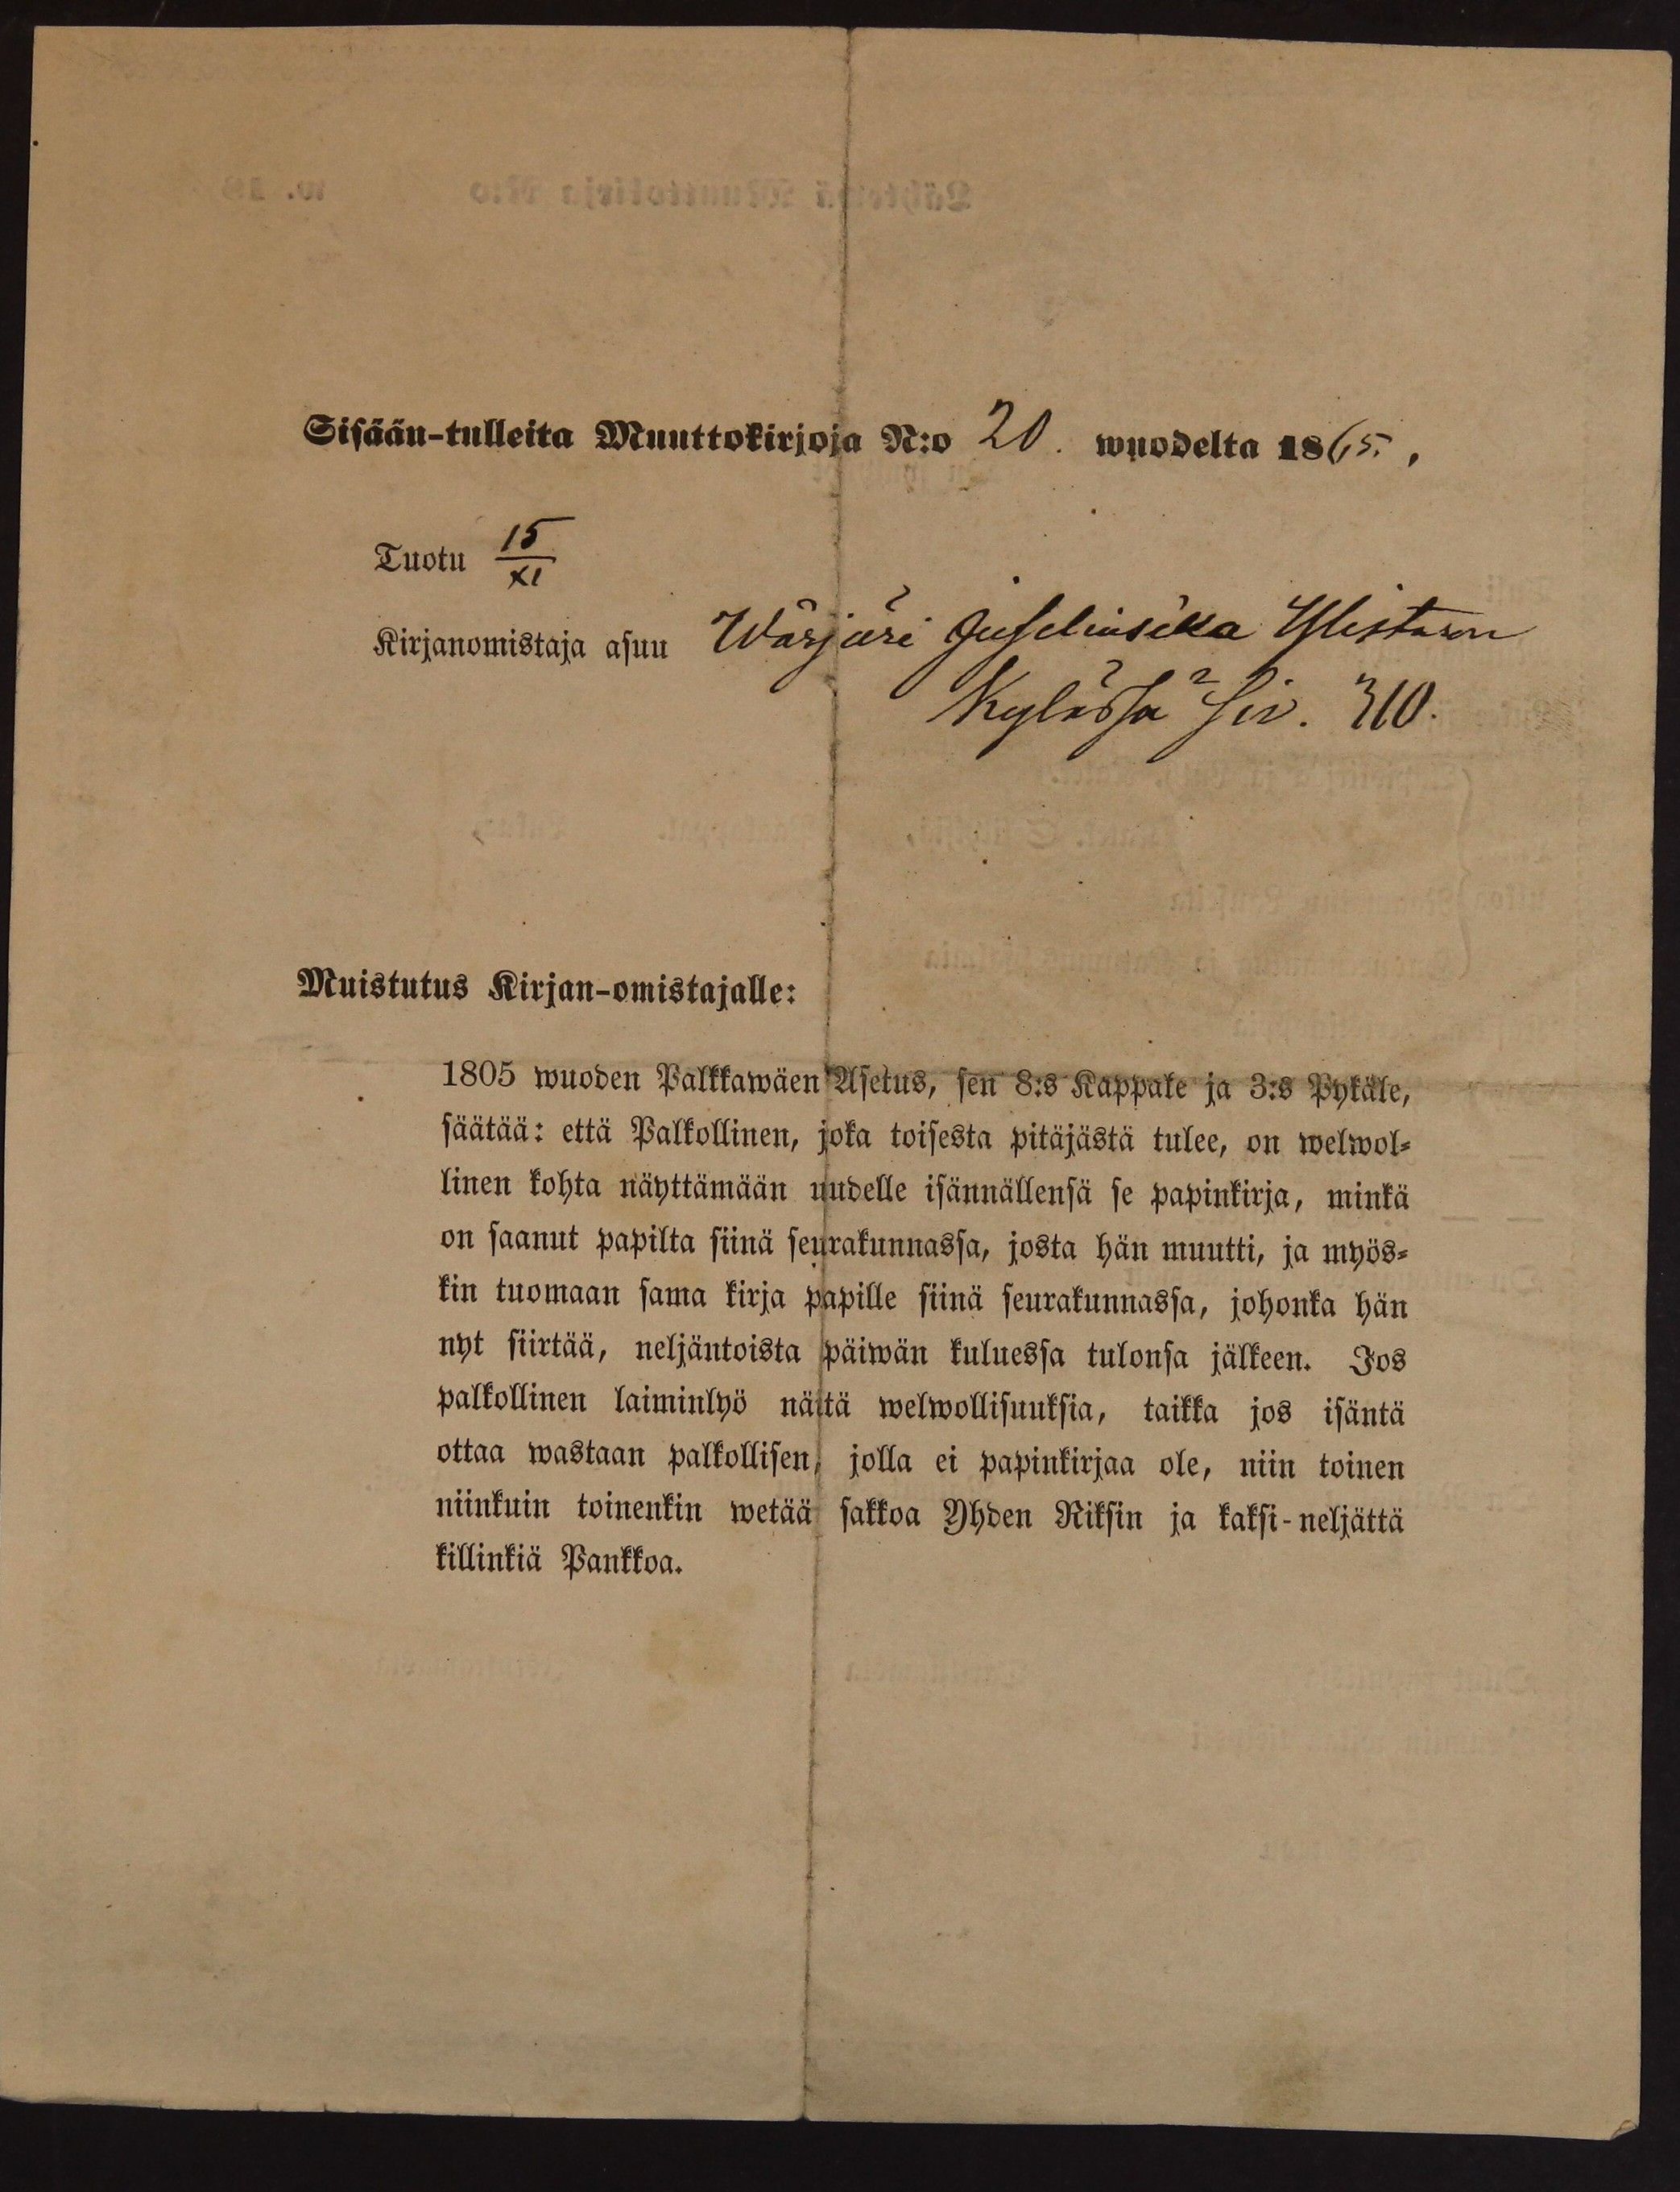 Sisään-tulleita Muuttokirjoja N:o 20. wuodelta 1865.,
Tuotu 15/XI
Kirjanomistaja asuu Wärjäri Juseliusella Ylistaron
Kylässä Siv. 310.
Muistutus Kirjan-omistajalle:
1805 wuoden Palkkawäen Asetus, sen 8:s Kappale ja 3:s Pykäle,
säätää: että Palkollinen, joka toisesta pitäjästä tulee, on welwol-
linen kohta näyttämään uudelle isännällensä se papinkirja, minkä
on saanut papilta siinä seurakunnassa, josta hän muutti, ja myös-
kin tuomaan sama kirja papille siinä seurakunnassa, johonka hän
nyt siirtää, neljäntoista päiwän kuluessa tulonsa jälkeen. Jos
palkollinen laiminlyö näitä welwollisuuksia, taikka jos isäntä
ottaa wastaan palkollisen, jolla ei papinkirjaa ole, niin toinen
niinkuin toinenkin wetää sakkoa Yhden Riksin ja kaksi-neljättä
killinkiä Pankkoa.